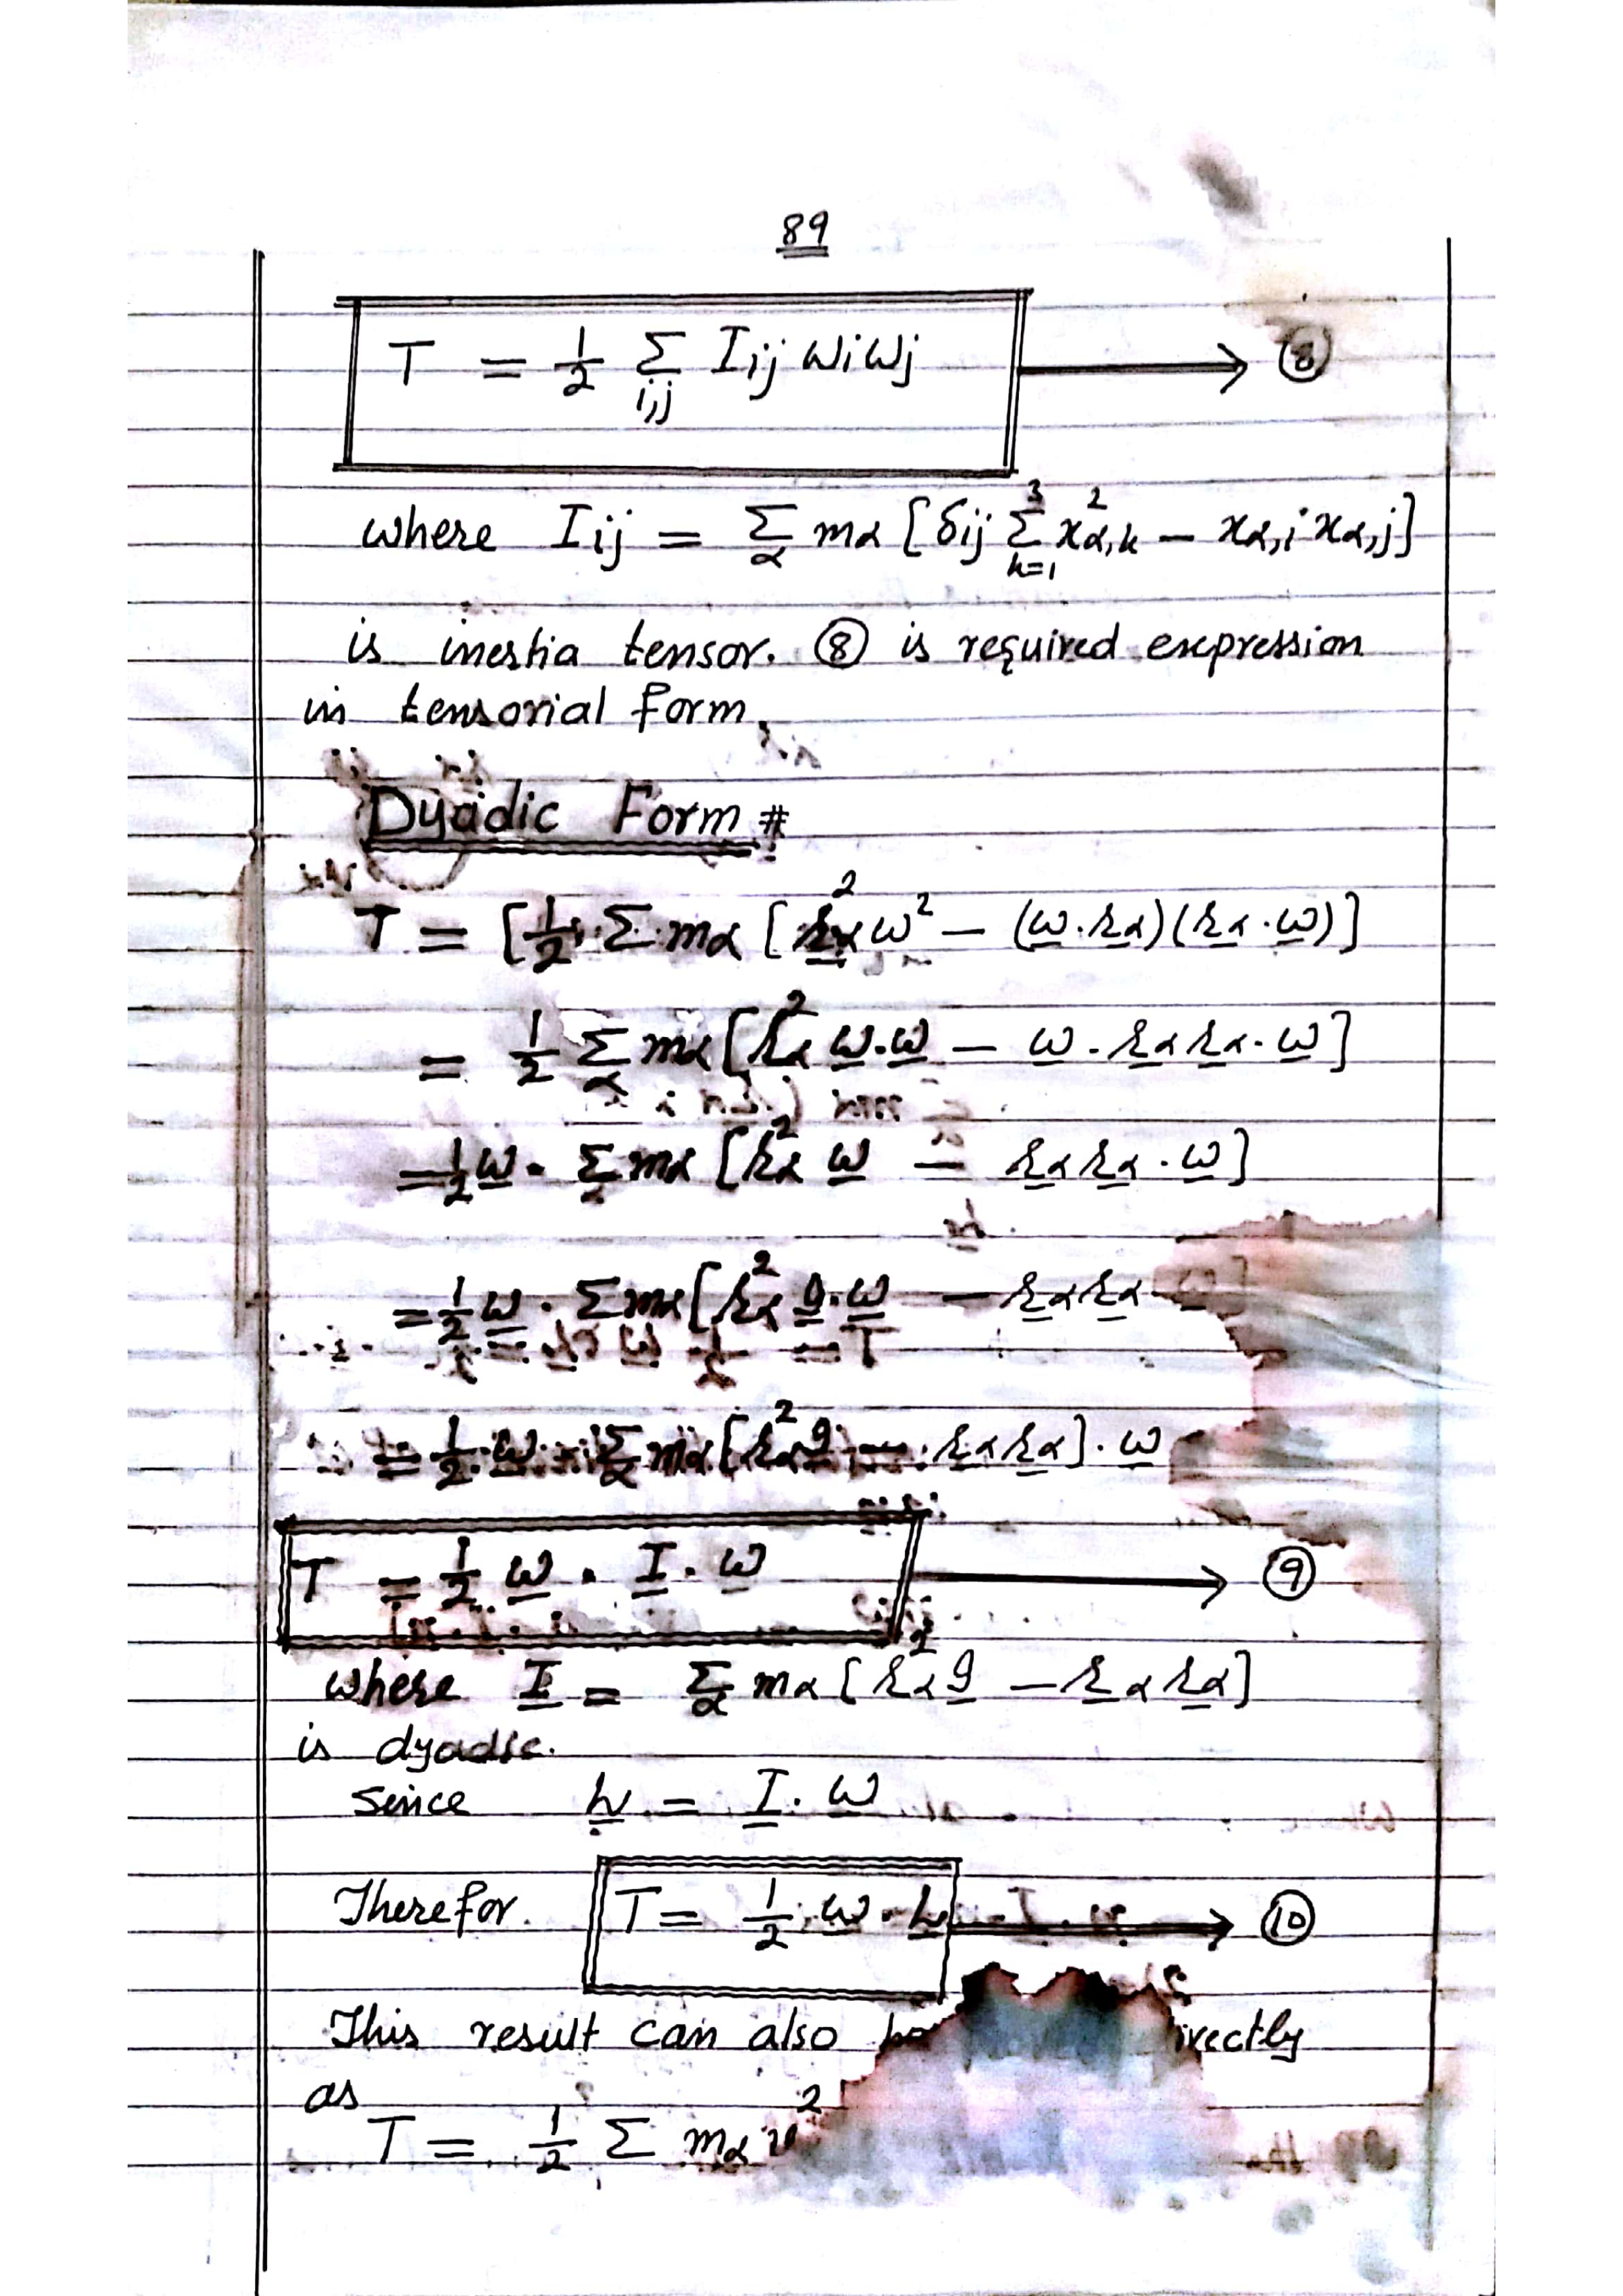 89
T = 1/2 Σ_{i,j} I_{ij} ω_i ω_j → ⑧
where I_{ij} = Σ_α m_α [δ_{ij} Σ_{k=1}^{3} x²_{α,k} − x_{α,i} x_{α,j}]
is inertia tensor. ⑧ is required expression
in tensorial form.
Dyadic Form #
T = [1/2 Σ m_α [r_α² ω² − (ω̲.r̲_α)(r̲_α.ω̲)]
= 1/2 Σ_α m_α [r_α² ω̲.ω̲ − ω.r̲_α r̲_α.ω̲]
= 1/2 ω̲. Σ_α m_α [r_α² ω̲ − r̲_α r̲_α.ω̲]
= 1/2 ω̲. Σ m_α [r_α² g̲.ω̲ − r̲_α r̲_α
= 1/2 ω̲. Σ_α m_α [r_α² g̲ − r̲_α r̲_α].ω̲
T = 1/2 ω̲. I̲. ω̲ → ⑨
where I̲ = Σ_α m_α [r_α² g̲ − r̲_α r̲_α]
is dyadic.
since L̲ = I̲. ω̲
Therefor. T = 1/2 ω̲. L̲ → ⑩
This result can also
as
T = 1/2 Σ m_α v²